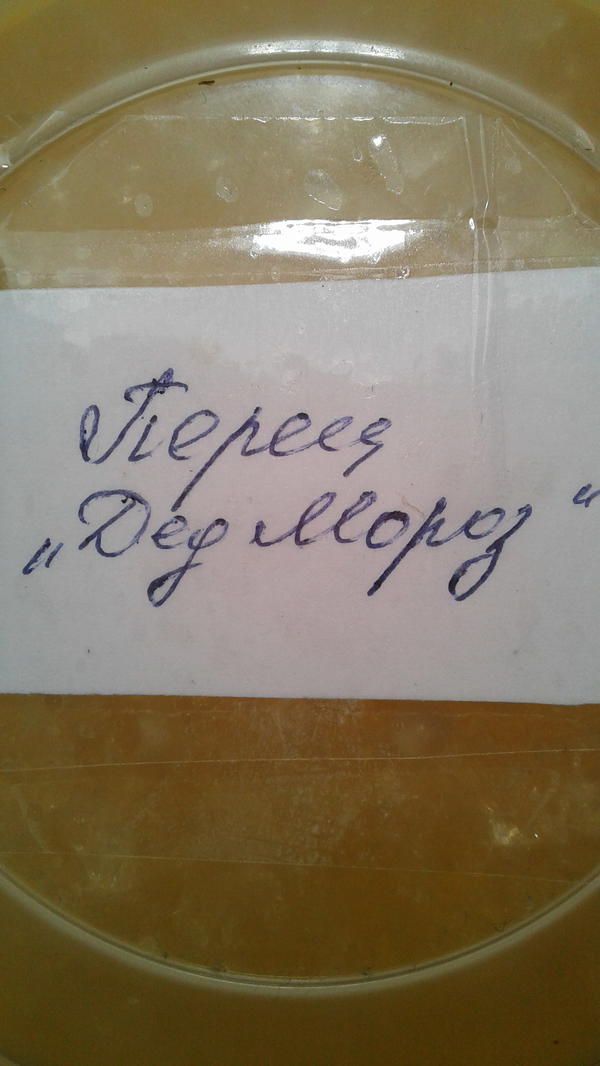 Перец
„Дед Мороз“